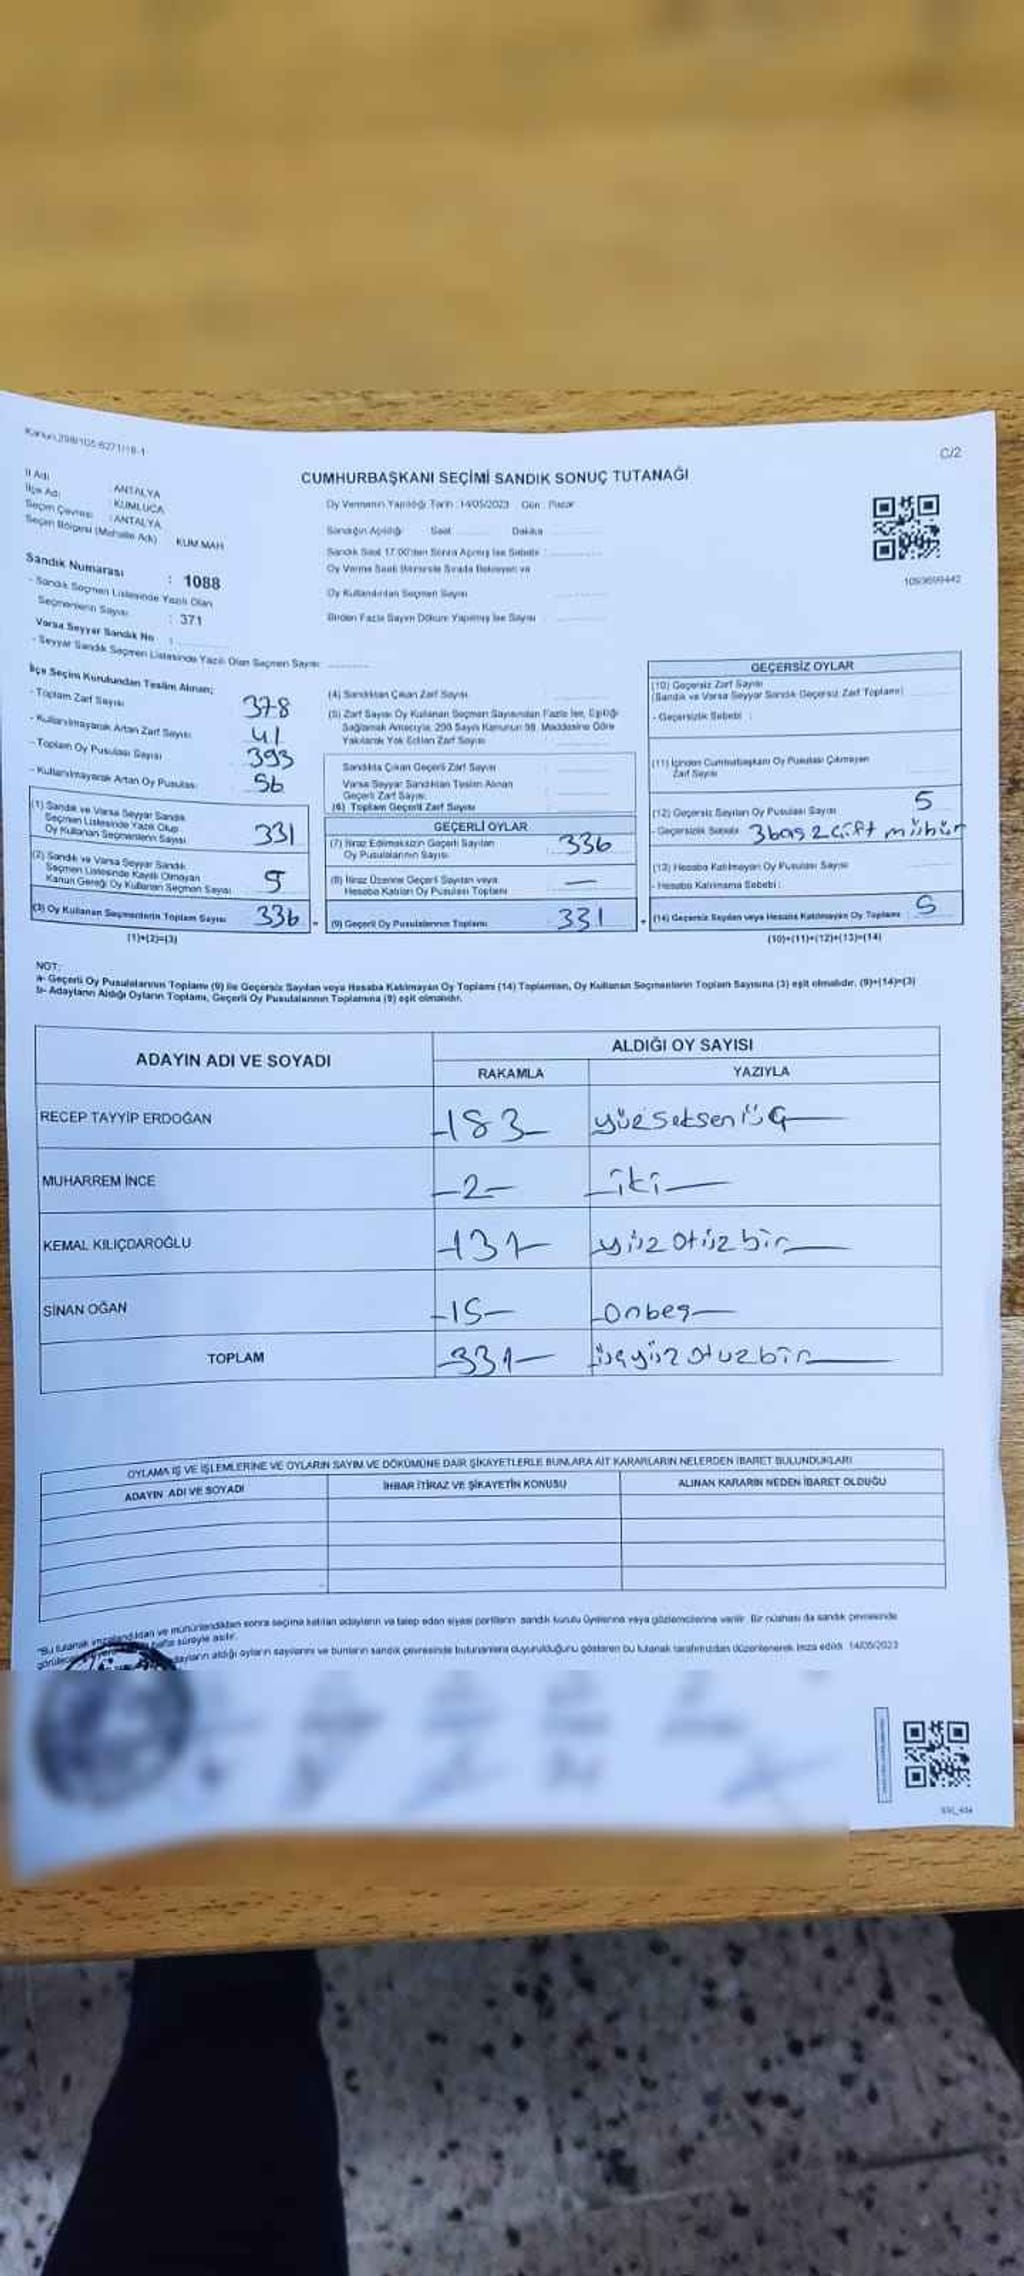 Kanun 298/105-6271/18-1
C/2
CUMHURBAŞKANI SEÇİMİ SANDIK SONUÇ TUTANAĞI
İl Adı ANTALYA
İlçe Adı KUMLUCA
Seçim Çevresi : ANTALYA
Seçim Bölgesi (Mahalle Adı) KUM MAH
Oy Vermenin Yapıldığı Tarih : 14/05/2023 Gün : Pazar
Sandığın Açıldığı Saat Dakika
Sandık Saat 17.00'den Sonra Açılmış İse Sebebi :
Oy Verme Saati Bitiminde Sırada Bekleyen ve
Oy Kullandırılan Seçmen Sayısı
Birden Fazla Sayım Döküm Yapılmış İse Sayısı
1093699442
Sandık Numarası : 1088
- Sandık Seçmen Listesinde Yazılı Olan
Seçmenlerin Sayısı : 371
Varsa Seyyar Sandık No :
- Seyyar Sandık Seçmen Listesinde Yazılı Olan Seçmen Sayısı
İlçe Seçim Kurulundan Teslim Alınan;
- Toplam Zarf Sayısı 378
- Kullanılmayarak Artan Zarf Sayısı 41
- Toplam Oy Pusulası Sayısı 393
- Kullanılmayarak Artan Oy Pusulası 56
(1) Sandık ve Varsa Seyyar Sandık
Seçmen Listesinde Yazılı Olup
Oy Kullanan Seçmenlerin Sayısı 331
(2) Sandık ve Varsa Seyyar Sandık
Seçmen Listesinde Kayıtlı Olmayan
Kanun Gereği Oy Kullanan Seçmen Sayısı 5
(3) Oy Kullanan Seçmenlerin Toplam Sayısı 336
(1)+(2)=(3)
(4) Sandıktan Çıkan Zarf Sayısı
(5) Zarf Sayısı Oy Kullanan Seçmen Sayısından Fazla İse, Eşitliği
Sağlamak Amacıyla, 298 Sayılı Kanunun 98. Maddesine Göre
Yakılarak Yok Edilen Zarf Sayısı
Sandıkta Çıkan Geçerli Zarf Sayısı
Varsa Seyyar Sandıktan Teslim Alınan
Geçerli Zarf Sayısı
(6) Toplam Geçerli Zarf Sayısı
GEÇERLİ OYLAR
(7) İtiraz Edilmeksizin Geçerli Sayılan
Oy Pusulalarının Sayısı 336
(8) İtiraz Üzerine Geçerli Sayılan veya
Hesaba Katılan Oy Pusulası Toplamı —
(9) Geçerli Oy Pusulalarının Toplamı 331
GEÇERSİZ OYLAR
(10) Geçersiz Zarf Sayısı
(Sandık ve Varsa Seyyar Sandık Geçersiz Zarf Toplamı)
- Geçersizlik Sebebi :
(11) İçinden Cumhurbaşkanı Oy Pusulası Çıkmayan
Zarf Sayısı
(12) Geçersiz Sayılan Oy Pusulası Sayısı 5
- Geçersizlik Sebebi 3 boş 2 çift mühür
(13) Hesaba Katılmayan Oy Pusulası Sayısı
- Hesaba Katılmama Sebebi :
(14) Geçersiz Sayılan veya Hesaba Katılmayan Oy Toplamı 5
(10)+(11)+(12)+(13)=(14)
NOT:
a- Geçerli Oy Pusulalarının Toplamı (9) ile Geçersiz Sayılan veya Hesaba Katılmayan Oy Toplamı (14) Toplamları, Oy Kullanan Seçmenlerin Toplam Sayısına (3) eşit olmalıdır. (9)+(14)=(3)
b- Adayların Aldığı Oyların Toplamı, Geçerli Oy Pusulalarının Toplamına (9) eşit olmalıdır.
ADAYIN ADI VE SOYADI ALDIĞI OY SAYISI
RAKAMLA YAZIYLA
RECEP TAYYİP ERDOĞAN -183- yüzseksenüç
MUHARREM İNCE -2- iki
KEMAL KILIÇDAROĞLU -131- yüzotüzbir
SİNAN OĞAN -15- onbeş
TOPLAM -331- üçyüzotuzbir
OYLAMA İŞ VE İŞLEMLERİNE VE OYLARIN SAYIM VE DÖKÜMÜNE DAİR ŞİKAYETLERLE BUNLARA AİT KARARLARIN NELERDEN İBARET BULUNDUKLARI
ADAYIN ADI VE SOYADI İHBAR İTİRAZ VE ŞİKAYETİN KONUSU ALINAN KARARIN NEDEN İBARET OLDUĞU
"Bu tutanak imzalandıktan ve mühürlendikten sonra seçime katılan adayların ve talep eden siyasi partilerin sandık kurulu üyelerine veya gözlemcilerine verilir. Bir nüshası da sandık çevresinde
hafta süreyle asılır.
adayların aldığı oyların sayılarını ve bunların sandık çevresinde bulunanlara duyurulduğunu gösteren bu tutanak tarafımızdan düzenlenerek imza edildi. 14/05/2023